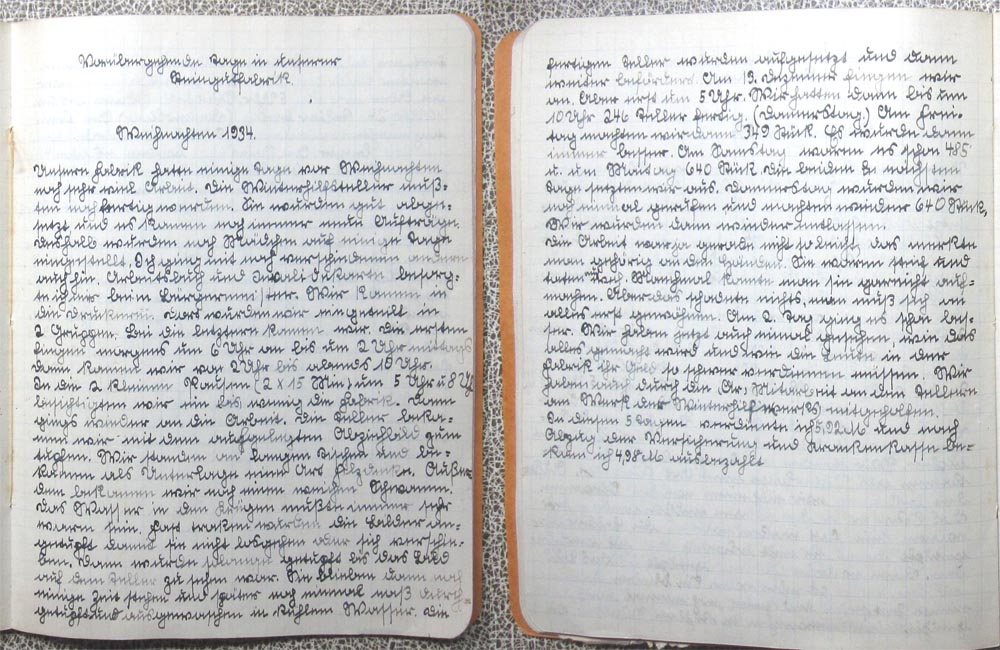 Vorübergehende Tage in unserer
Steingutfabrik.
Weihnachten 1934.
Unsere Fabrik hatte einige Tage vor Weihnachten
noch sehr viel Arbeit. Die Winterhilfsteller muß-
ten noch fertig werden. Sie wurden gut abge-
setzt und es kamen noch immer neue Aufträge.
Deshalb wurden noch Mädchen auf einige Tage
eingestellt. Ich ging mit noch verschiedenen andern
auch hin. Arbeitsbuch und Invalidenkarten besorg-
ten wir beim Bürgermeister. Wir kamen in
die Druckerei. Dort wurden wir eingeteilt in
2 Gruppen. Bei die letztern kamen wir. Die ersten
fingen morgens um 6 Uhr an bis um 2 Uhr mittags
dann kamen wir von 2 Uhr bis abends 10 Uhr.
In die 2 kleinen Pausen (2 x 15 Min) um 5 Uhr u 8 Uhr
besichtigten wir ein wenig die Fabrik. Dann
gings wieder an die Arbeit. Die Teller beka-
men wir mit dem aufgelegten Abziehbild zum
tupfen. Wir standen an langen Tischen und be-
kamen als Unterlage eine Art Filzdecke. Außer
dem bekamen wir noch einen weichen Schwamm.
Das Wasser in den Krügen mußte immer sehr
warm sein. Fast trocken wurden die Bilder an-
getupft damit sie nicht losgehen oder sich verschie-
ben. Dann wurde solange getupft bis das Bild
auf dem Teller zu sehen war. Sie blieben dann noch
einige Zeit stehen und später noch einmal naß
getupft und ausgewaschen in kühlem Wasser. Die
fertigen Teller wurden aufgesetzt und dann
weiter befördert. Am 13. Dezember fingen wir
an. Aber erst um 5 Uhr. Wir hatten dann bis um
10 Uhr 246 Teller fertig. (Donnerstag.) Am Frei-
tag machten wir dann 349 Stück. Es wurde dann
immer besser. Am Samstag waren es schon 485
u. am Montag 640 Stück. Die beiden nächsten
Tage setzten wir aus. Donnerstag wurden wir
noch einmal gerufen und machten wieder 640 Stück.
Wir wurden dann wieder entlassen.
Die Arbeit war ja gerade nicht so leicht, das merkte
man gehörig an den Händen. Sie waren steif und
taten weh. Manchmal konnte man sie garnicht auf-
machen. Aber das schadete nichts, man muß sich an
alles erst gewöhnen. Am 2. Tag ging es schon bes-
ser. Wir haben jetzt auch einmal gesehen, wie das
alles gemacht wird und wie die Leute in der
Fabrik ihr Geld so schwer verdienen müssen. Wir
haben auch durch die Mitarbeit an den Tellern
am Werk der Winterhilfwerks mitgeholfen.
In diesen 5 Tagen verdiente ich 5,92 M und nach
Abzug der Versicherung und Krankenkasse be-
kam ich 4,98 M ausbezahlt